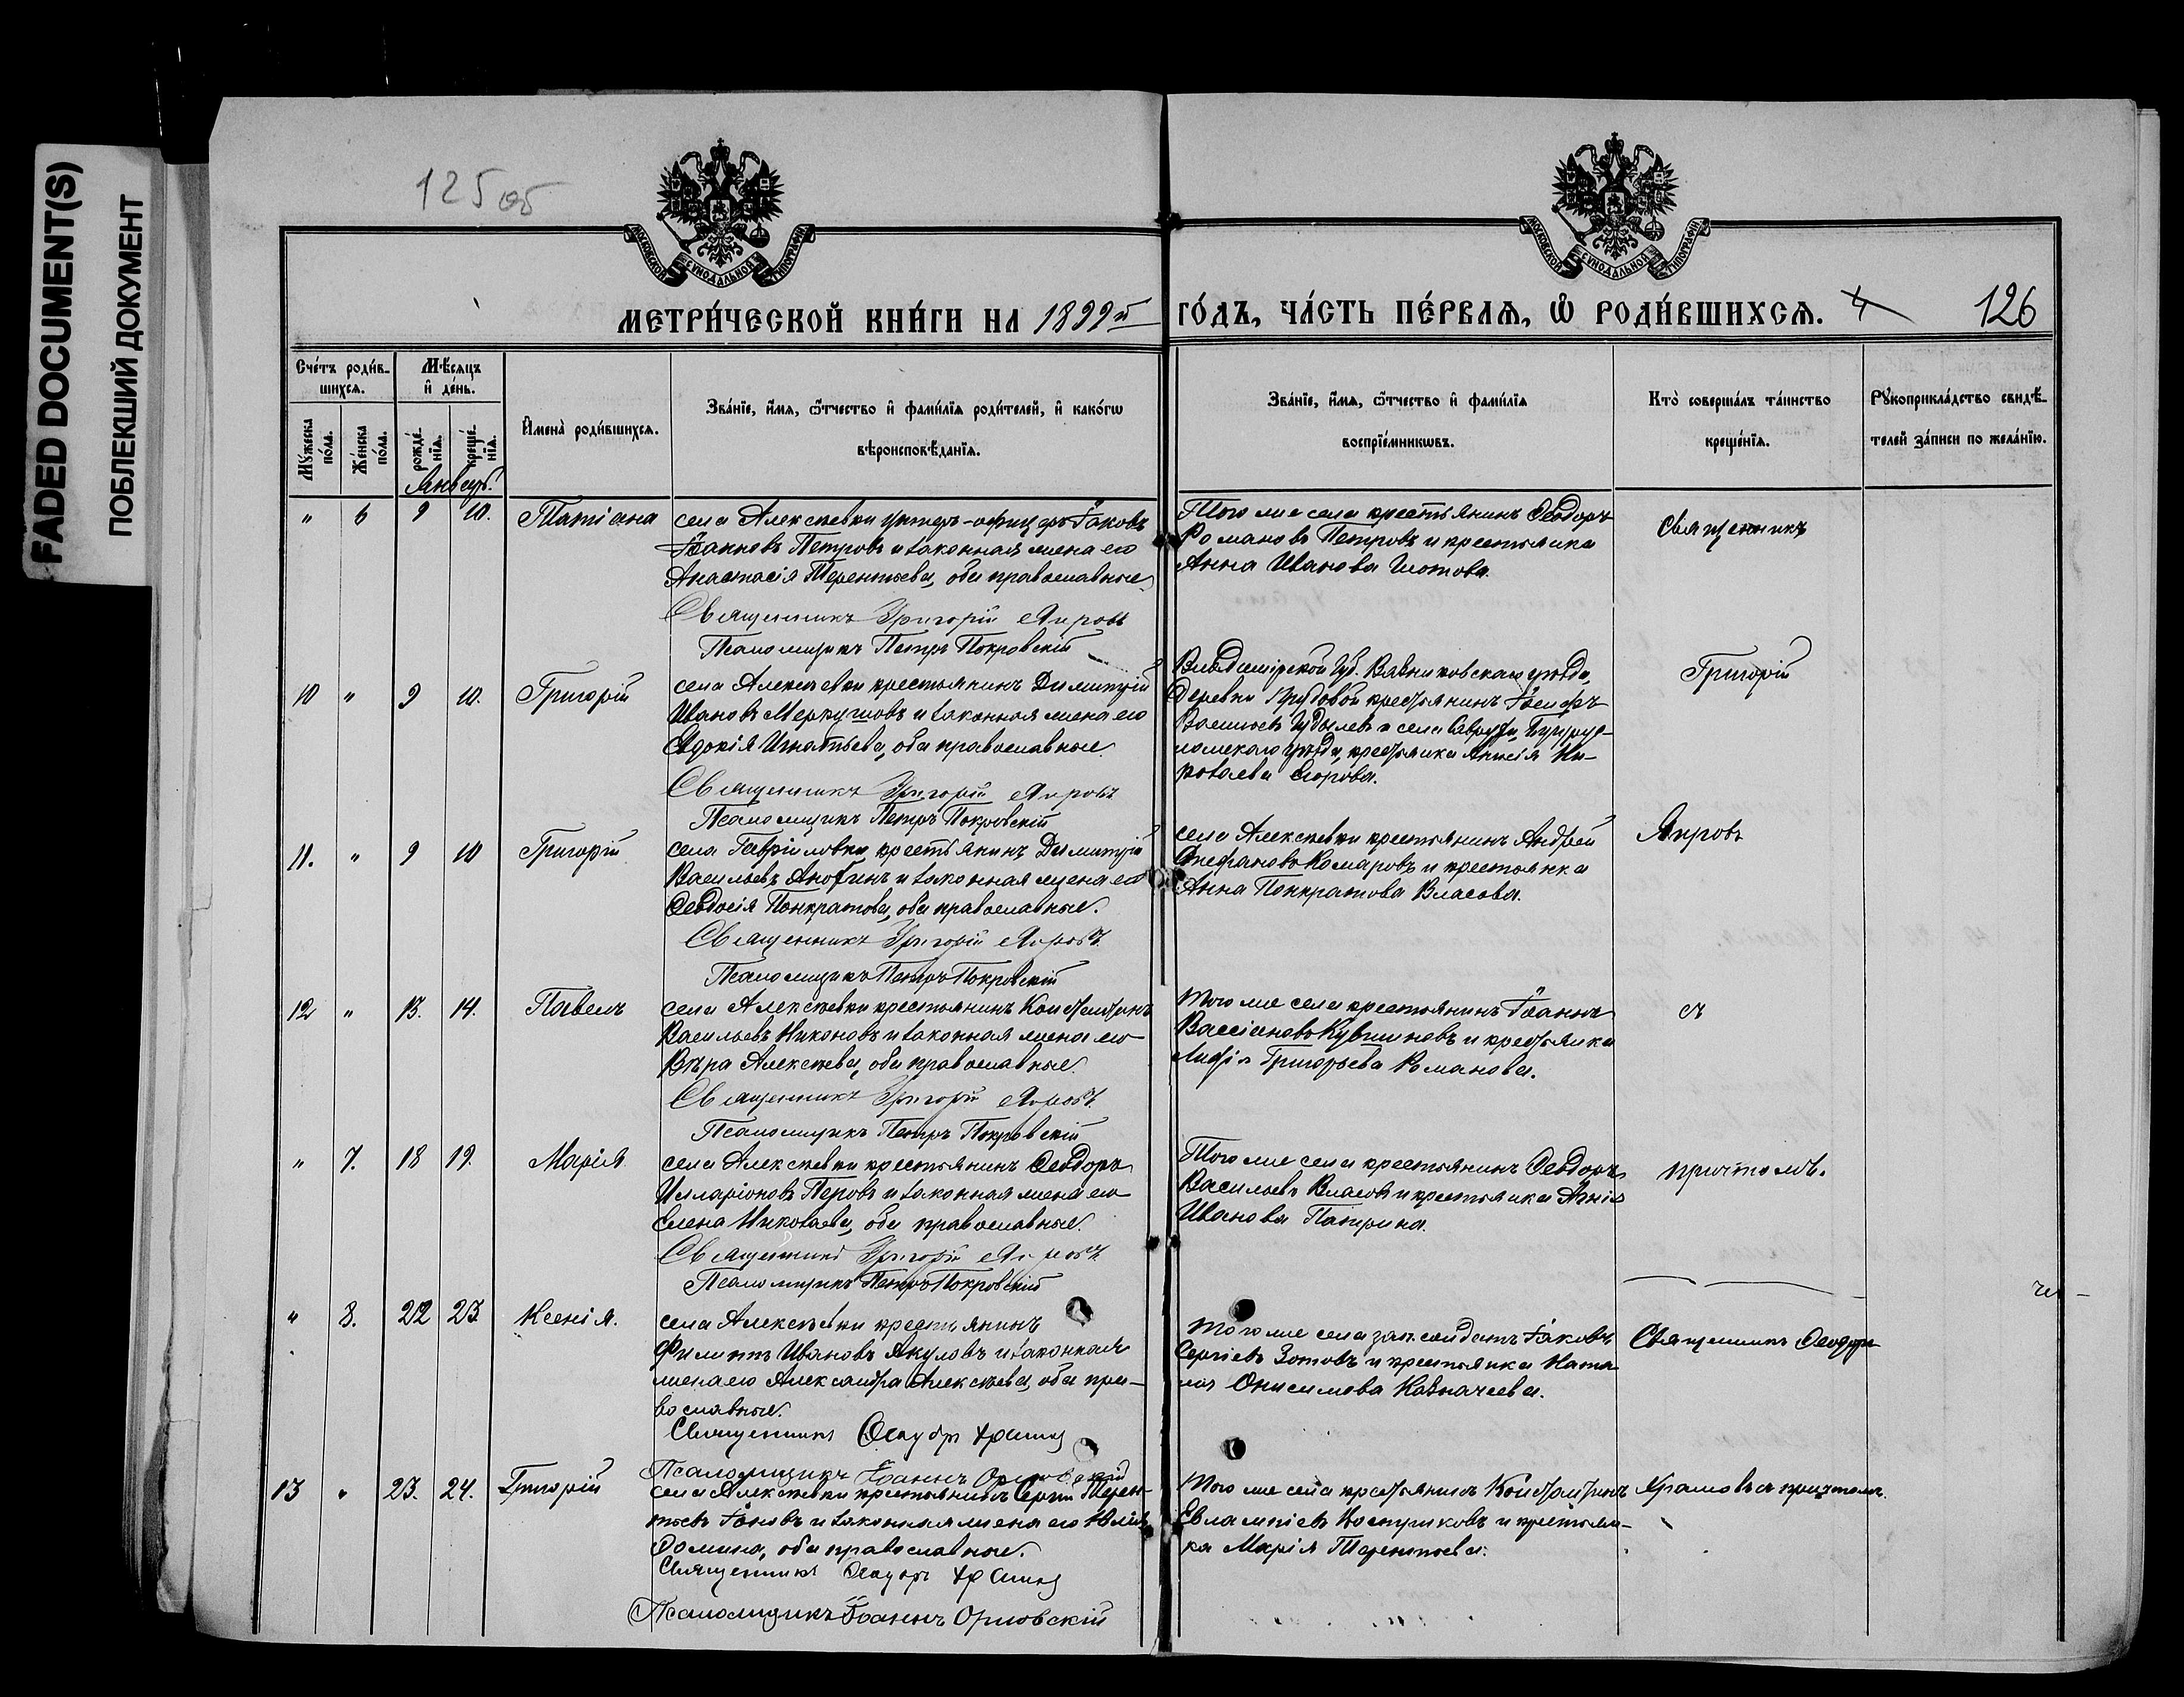 FADED DOCUMENT(S)
ПОБЛЕКШИЙ ДОКУМЕНТ
125 об
МОСКОВСКОЙ СѴНОДАЛЬНОЙ ТИПОГРАФІИ
МОСКОВСКОЙ СѴНОДАЛЬНОЙ ТИПОГРАФІИ
МЕТРИ́ЧЕСКОЙ КНИ́ГИ НА 1899й ГО́ДЪ, ЧА́СТЬ ПЕ́РВАЯ, Ѡ РОДИ́ВШИХСЯ. 4 126
Сче́тъ роди́в-
шихся.
Мѣ́сяцъ
и де́нь.
Му́жеска по́ла.
Же́нска по́ла.
рожде́-
нія.
креще́-
нія.
Имена̀ роди́вшихся.
Зва́ніе, и́мя, ѻ́тчество и фами́лія роди́телей, и како́гѡ
вѣроисповѣ́данія.
Зва́ніе, и́мя, ѻ́тчество и фами́лія
воспріе́мникѡвъ.
Кто̀ соверша́лъ та́инство
креще́нія.
Рꙋкоприкла́дство свидѣ́-
телей за́писи по жела́нію.
Январь.
" 6 9 10. Татіана
села Алексѣевки унтеръ-офицеръ Іаковъ
Іоанновъ Петровъ и законная жена его
Анастасія Терентьева, оба православные.
Священникъ Григорій Яировъ
Псаломщикъ Петръ Покровскій
Того же села крестьянинъ Ѳеодоръ
Романовъ Петровъ и крестьянка
Анна Иванова
Священникъ
10 " 9 10. Григорій
села Алексѣевки крестьянинъ Димитрій
Ивановъ Меркушовъ и законная жена его
Евдокія Игнатьева, оба православные.
Священникъ Григорій Яировъ
Псаломщикъ Петръ Покровскій
Владимірской губ. уѣзда,
деревни крестьянинъ Іосифъ
Васильевъ и села Бугурус-
ланскаго уѣзда, крестьянка Ни-
колаева Егорова.
Григорій
11. " 9 10 Григорій
села Гавриловки крестьянинъ Димитрій
Васильевъ Анохинъ и законная жена его
Ѳеодосія Панкратова, оба православные.
Священникъ Григорій Яировъ
Псаломщикъ Петръ Покровскій
села Алексѣевки крестьянинъ Андрей
Стефановъ Комаровъ и крестьянка
Анна Панкратова Власова.
Яировъ
12 " 13. 14. Павелъ
села Алексѣевки крестьянинъ Константинъ
Васильевъ Никоновъ и законная жена его
Вѣра Алексѣева, оба православные.
Священникъ Григорій Яировъ
Псаломщикъ Петръ Покровскій
Того же села крестьянинъ Іоаннъ
Вассіановъ Кувшиновъ и крестьянка
Лидія Григорьева Романова.
съ
" 7. 18 19. Марія
села Алексѣевки крестьянинъ Ѳеодоръ
Илларіоновъ Перовъ и законная жена его
Елена Николаева, оба православные.
Священникъ Григорій Яировъ
Псаломщикъ Петръ Покровскій
Того же села крестьянинъ Ѳеодоръ
Васильевъ Власовъ и крестьянка
Иванова
причтомъ.
" 8. 22 23 Ксенія.
села Алексѣевки крестьянинъ
Филиппъ Ивановъ Акуловъ и законная
жена его Александра Алексѣева, оба пра-
вославные.
Священникъ Ѳеодоръ Храмовъ
Псаломщикъ Іоаннъ Орловскій
Того же села зап. солдатъ Іаковъ
Сергіевъ Зотовъ и крестьянка Ната-
лія Онисимова Казначеева.
Священникъ Ѳеодоръ
13 " 23. 24. Григорій
села Алексѣевки крестьянинъ Сергій Терен-
тьевъ и законная жена его Юлія
Ѳомина, оба православные.
Священникъ Ѳеодоръ Храмовъ
Псаломщикъ Іоаннъ Орловскій
Того же села крестьянинъ Константинъ
Евлампіевъ и крестьян-
ка Марія Терентьева.
Храмовъ съ причтомъ.